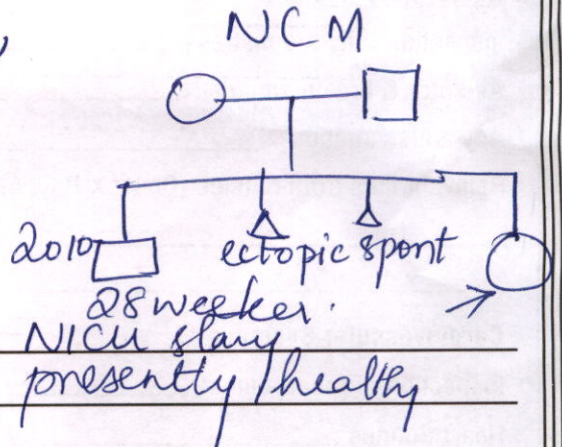 NCM
2010 ectopic spont
28 weeker.
NICU stay
presently healthy